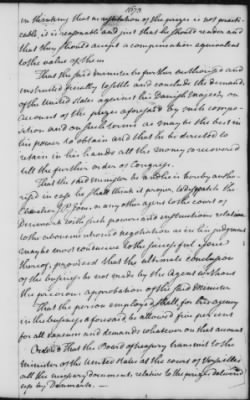 1873
in thinking that as restitution of the prizes is not practi-
cable, it is reasonable and just that he should render and
that they should accept a compensation equivalent
to the value of them
That the said minister be further authorised and
instructed finally to settle and conclude the demand,
of the United States against his Danish Majesty, on
account of the prizes aforesaid by such compo-
sition and on such terms as may be the best in
his power to obtain and that he be directed to
retain in his hands all the money so recovered
till the further order of Congress.
That the said minister be and he is hereby author-
ised in case he shall think it proper, to dispatch the
Chevalier J. P. Jones or any other agent to the court of
Denmark with such powers and instructions relative
to the abovementioned negotiation as in his judgment
may be most conducive to the successful issue
thereof, provided that the ultimate conclusion
of the business be not made by the agent without
the previous approbation of the said minister
That the person employed shall, for his agency
in the business aforesaid, be allowed five per cent
for all expences and demands whatever on that account
Ordered That the Board of treasury transmit to the
Minister of the United States at the court of Versailles
all the necessary documents relative to the prizes delivered
up by Denmark. —